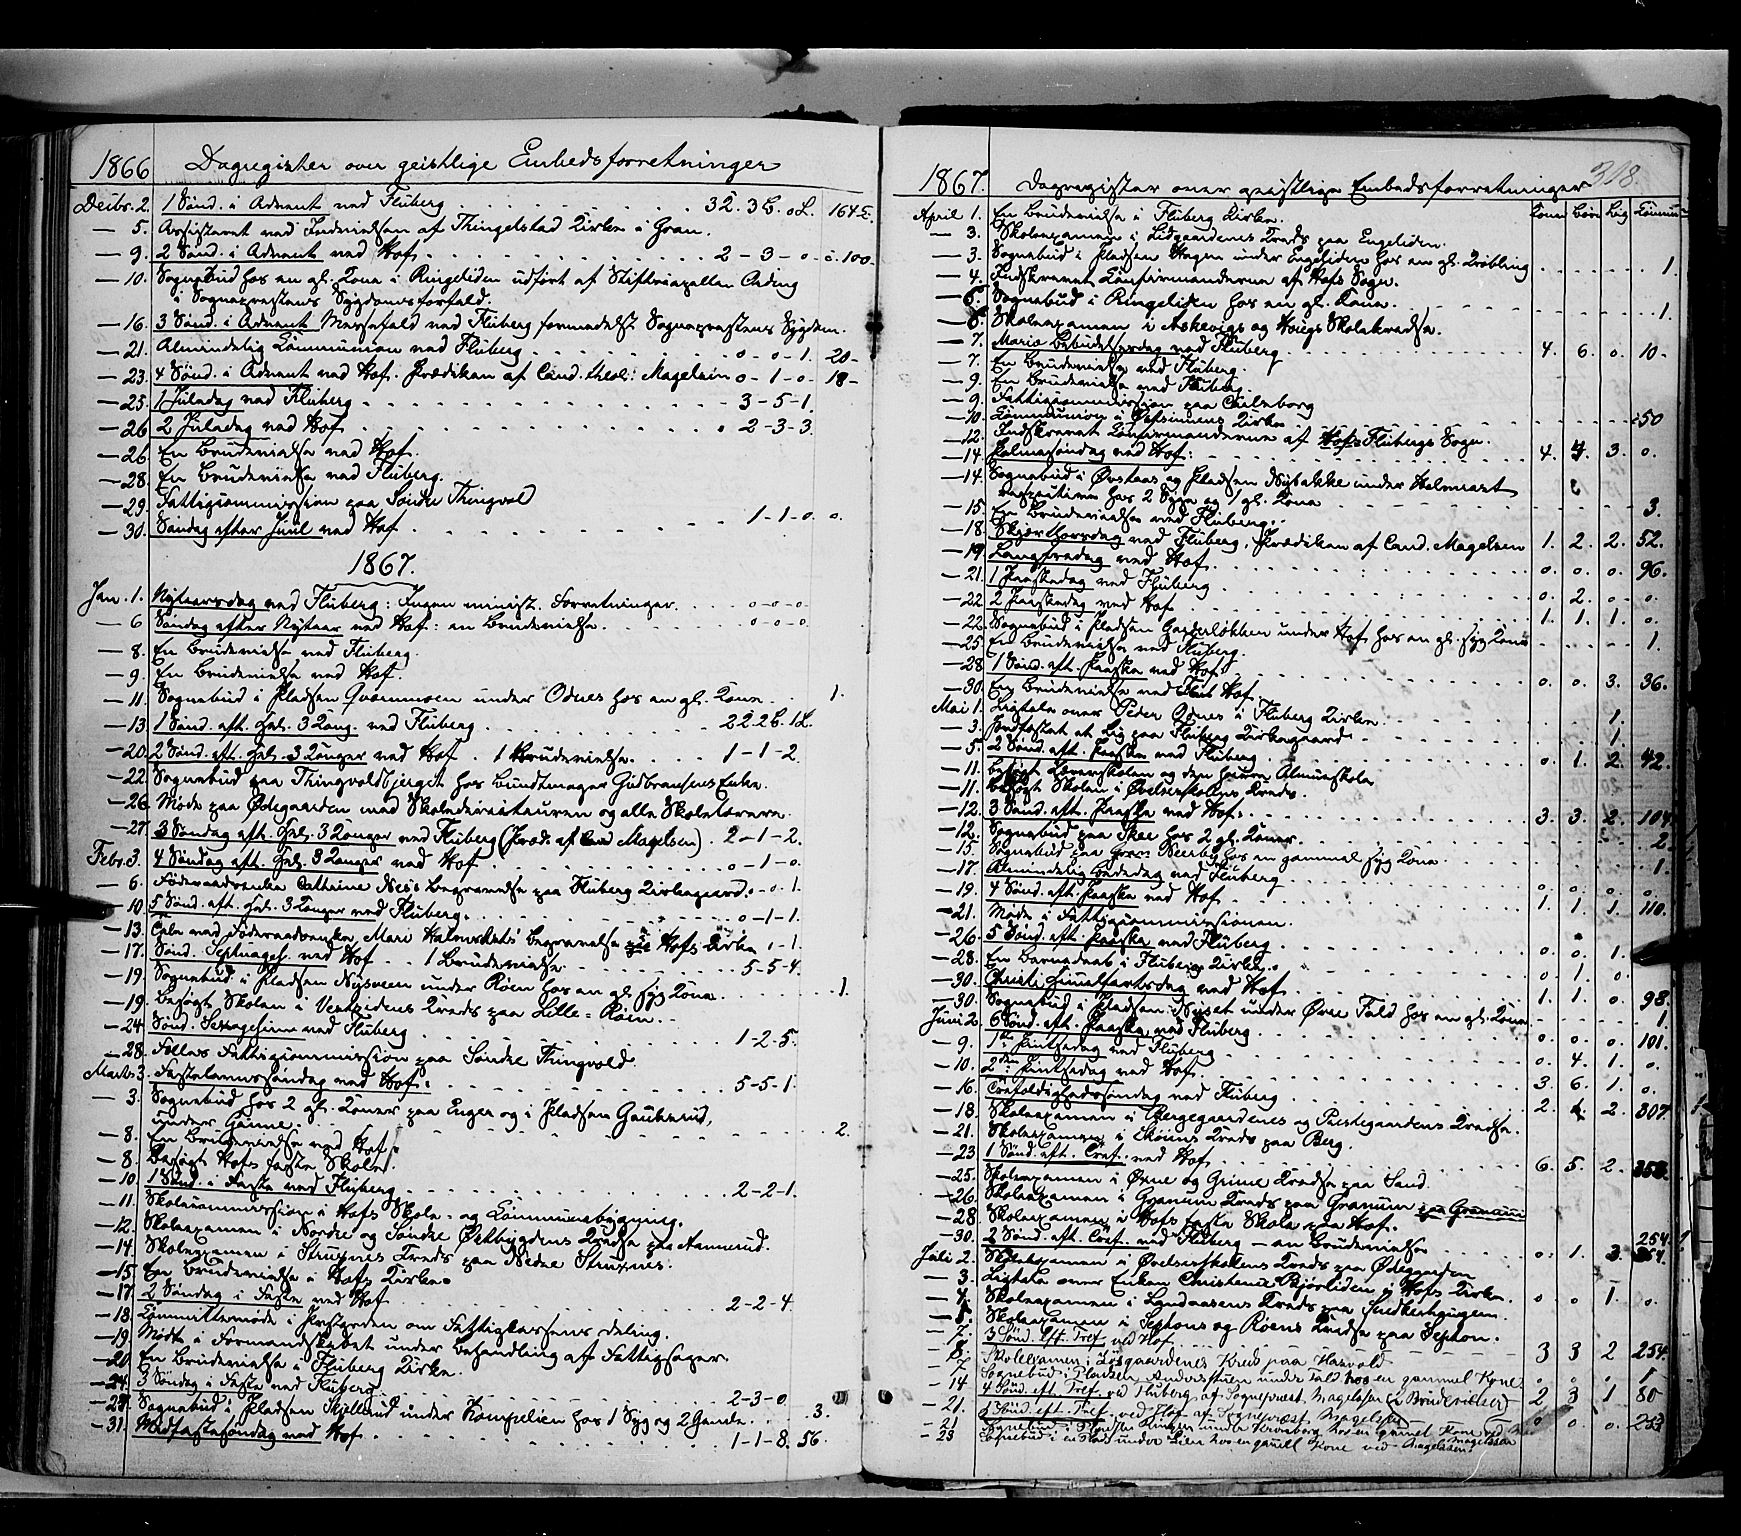 1866 Dagregister over geistlige Embedsforretninger
Decbr. 2. 1 Sønd. i Advent ved Fluberg 32. 3 B. 0 L. 164
— 5. Assisteret ved Indvielsen af Thingelstad Kirke i Gran.
— 9. 2 Sønd. i Advent ved Hof 2 - 3 - 0 100
— 10. Sognebud hos en gl. Kone i Ringeliden udført af Stiftscapellan
i Sognepræstens Sygdomsforfald.
— 16. 3 Sønd. i Advent Messefald ved Fluberg formedelst Sognepræstens Sygdom.
— 21. Almindelig Communion ved Fluberg 0 - 0 - 1. 20
— 23. 4 Sønd. i Advent ved Hof. Prædiken af Cand. theol: Magelsen 0 - 1 - 0 18
— 25. 1 Juledag ved Fluberg 3 - 5 - 1.
— 26. 2 Juledag ved Hof 2 - 3 - 3
— 26. En Brudevielse ved Hof.
— 28. En Brudevielse ved Fluberg.
— 29. Fattigcommission paa Søndre Thingvold
— 30. Søndag efter Juul ved Hof 1 - 1 - 0 0.
1867.
Jan. 1. Nytaarsdag ved Fluberg: Ingen minist. Forretninger 0 - 0 - 0
— 6 Søndag efter Nytaar ved Hof: en Brudevielse 0 - 0 - 0
— 8. En Brudevielse ved Fluberg.
— 9. En Brudevielse ved Hof.
— 11. Sognebud i Pladsen Qværnmoen under Odnes hos en gl. Kone 1.
— 13. 1 Sønd. eft. Hel. 3 Kong. ved Fluberg 2 2. 2 B. 1 L.
— 20. 2 Sønd. eft. Hel. 3 Konger ved Hof. 1 Brudevielse 1 - 1 - 2
— 22. Sognebud paa Thingvoldbjerget hos Bundtmager Gudbransens Enke.
— 26. Møde paa Ødegaarden med Skoledirecteuren og alle Skolelærere.
— 27. 3 Søndag eft. Hel. 3 Konger ved Fluberg (Præd: af Cand Magelsen) 2 - 1 - 2.
Febr. 3. 4 Søndag eft. Hel. 3 Konger ved Hof 0 - 1 - 0
— 6. Føderaadsenke Cathrine Nes's Begravelse paa Fluberg Kirkegaard 0 - 0 - 1
— 10. 5 Sønd. eft. Hel. 3 Konger ved Fluberg 0 - 1 - 1.
— 13. Tale ved Føderaadsenke Mari Halmrasts Begravelse i Hofs Kirke 1 - 1
— 17. Sønd. Septuages. ved Hof 1 Brudevielse 5 - 5 - 4
— 19. Sognebud i Pladsen Nysveen under Røen hos en gl. syg Kone 1.
— 19. Besøgt Skolen i Vestsidens Kreds paa Lille-Røen.
— 24. Sønd. Sexagesima ved Fluberg 1 - 2 - 5.
— 28. Fælles Fattigcommission paa Søndre Thingvold.
Marts 3. Fastelavnssøndag ved Hof. 5 - 5 - 1.
— 3. Sognebud hos 2 gl. Koner paa Enger og i Pladsen Gaukerud,
under Gaarne 2.
— 8. En Brudevielse ved Hof.
— 8. Besøgt Hofs faste Skole.
— 10. 1 Sønd. i Faste ved Fluberg 2 - 2 - 1.
— 11. Skolecommission i Hofs Skole- og Communebygning.
— 12. Skoleexamen i Nordre og Søndre Østbygdens Kredse paa Aannerud.
— 14. Skoleexamen i Struxnes Kreds paa Nedre Struxnes.
— 15. En Brudevielse i Hofs Kirke.
— 17. 2 Søndag i Faste ved Hof 2 - 2 - 4
— 18. Committemøde i Præstgarden om Fattigkassens Deling.
— 19. Mødte i Formandskabet under Behandling af Fattigsager.
— 20. En Brudevielse i Fluberg Kirke.
— 24. 3 Søndag i Faste ved Fluberg 2 - 3 - 0
— 27. Sognebud i Pladsen under Kompelien hos 1 Syg og 2 Gamle 3.
— 31. Midfastesøndag ved Hof 1 - 1 - 8. 56.
1867. Dagregister over geistlige Embedsforretninger 318.
Kone Børn Lig Commun
April 1. En Brudevielse i Fluberg Kirke.
— 3. Skoleexamen i Lidgaardenes Kreds paa Engeliden.
— 3. Sognebud i Pladsen Hagen under Engeliden hos en gl. 1.
— 4. Indskrevet Confirmanderne af Hofs Sogn.
— 5. Sognebud i Ringeliden hos en gl. Kone 1.
— 6. Skoleexamen i Askevigs og Houg Skolekredse.
— 7. Mariæ Bebudelsesdag ved Fluberg 4. 6. 0. 10
— 7. En Brudevielse ved Fluberg.
— 9. En Brudevielse ved Fluberg.
— 9. Fattigcommission paa Carlsborg
— 10. Communion i Østsinnens Kirke 50
— 12. Indskrevet Confirmanderne af Hofs Flubergs Sogn.
— 14. Palmesøndag ved Hof: 4. 4 3. 0.
— 14. Sognebud i Øvstaas og Pladsen Nybakke under Halmrast
respective hos 2 Syge og 1 gl. Kone 3.
— 15. En Brudevielse ved Fluberg.
— 18. Skjærthorsdag ved Fluberg, Prædiken af Cand. Magelsen 1. 2. 2. 52.
— 19. Langfredag ved Hof 0. 0. 0. 96.
— 21. 1 Paaskedag ved Fluberg 0. 2. 0. 0.
— 22. 2 Paaskedag ved Hof 1. 1. 1. 0.
— 22. Sognebud i Pladsen Haugerløkken under Hof hos en gl. syg Kone 1.
— 25. En Brudevielse ved Fluberg.
— 28. 1 Sønd. eft. Paaske ved Hof 0. 0. 3. 36.
— 30. En Brudevielse ved Hof.
Mai 1. Ligtale over Peder Odnes i Fluberg Kirke 1.
— 3. Jordfæstet et Lig paa Fluberg Kirkegaard 1.
— 5. 2 Sønd. eft. Paaske ved Fluberg 0. 1. 2. 42.
— 11. Besøgt Lærerskolen og den høiere Almueskole
— 11. Besøgt Skolen i Øvelseskolens Kreds.
— 12. 3 Sønd. eft. Paaske ved Hof: 3. 3. 2. 104
— 12. Sognebud paa Skee hos 2 gl. Koner 2.
— 15. Sognebud paa Neerby hos en gammel syg Kone 1.
— 17. Almindelig Bededag ved Fluberg 0. 0. 0. 0.
— 19. 4 Sønd. eft. Paaske ved Hof 1. 1. 1. 110.
— 21. Møde i Fattigcommissionen.
— 26. 5 Sønd. eft. Paaske ved Fluberg 0. 0. 1.
— 28. En Barnedaab i Fluberg Kirke 0. 1. 0.
— 30. Christi Himmelfartsdag ved Hof 1. 1. 0. 98.
— 30. Sognebud i Pladsen Nyset under Øvre Fald hos en gl. Kone 1.
Juni 2. 6 Sønd. eft. Paaske ved Fluberg 0. 0. 0. 101.
— 9. 1ste Pintsedag ved Fluberg 0. 4. 1.
— 10. 2den Pintsedag ved Hof 3. 6. 1. 0.
— 16. Trefoldighedssøndag ved Fluberg 2. 2. 207.
— 18. Skoleexamen i Bergegaardenes og Præstegaardens Kredse.
— 21. Skoleexamen i Skøiens Kreds paa Berg.
— 23 1 Sønd. eft. Tref. ved Hof 6. 5. 2.
— 25. Skoleexamen i Øvre og Grime Kredse paa Sand.
— 26. Skoleexamen i Granum Kreds paa Granum
— 28. Skoleexamen i Hofs faste Skole paa Hof.
— 30. 2 Sønd. eft. Tref. ved Fluberg — en Brudevielse 0. 1. 3. 254
Juli 2. Skoleexamen i Øvelseskolens Kreds paa Ødegaarden
— 3. Ligtale over Enken Christence Bjørliden i Hofs Kirke 0 0 1. 0.
— 4. Skoleexamen i Landaasens Kreds paa Snedkerhugen.
— 5. Skoleexamen i Sephons og Røens Kredse paa Sephon.
— 7. 3 Sønd. eft. Tref ved Hof 3 3 2 254
— 8. Skolexamen i Lysgaardenes Kreds paa Hasvold
— 7 Sognebud i Pladsen Anderstuen under Fald hos en gammel Kone. 1
— 14 4 Sønd. eft. Tref ved Fluberg af Sognepræst Magelsen (2 Brudevielser) 2 3 1 80
— 21. 5 Sønd eft Tref ved Hof af Sognepræst Magelsen 0. 0. 0. 253
— 21 Sognebud i Pladsen under hos en gammel Kone ved Magelsen
— 23 Sognebud i en Plads under Lien hos en gamel Kone ved Magelssen.